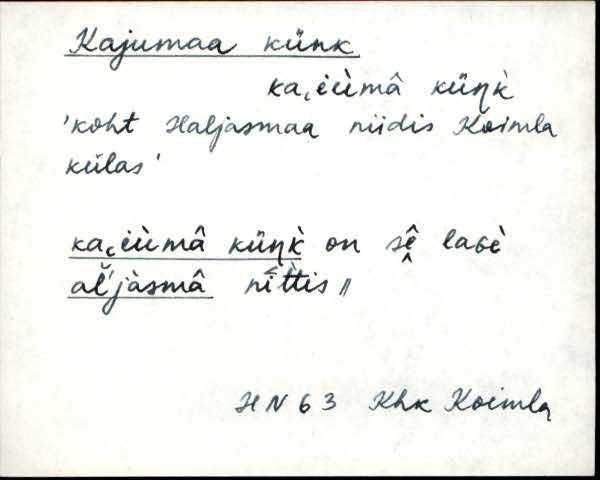 Kajumaa künk
ka˛i̮ùmâ küŋk̀
'koht Haljasmaa niidis Koimla
külas'
ka˛i̮ùmâ küŋk̀ on sḙ̂ laɢè
al̆'jàsmâ nìttis ||
HN 63 Khk Koimla